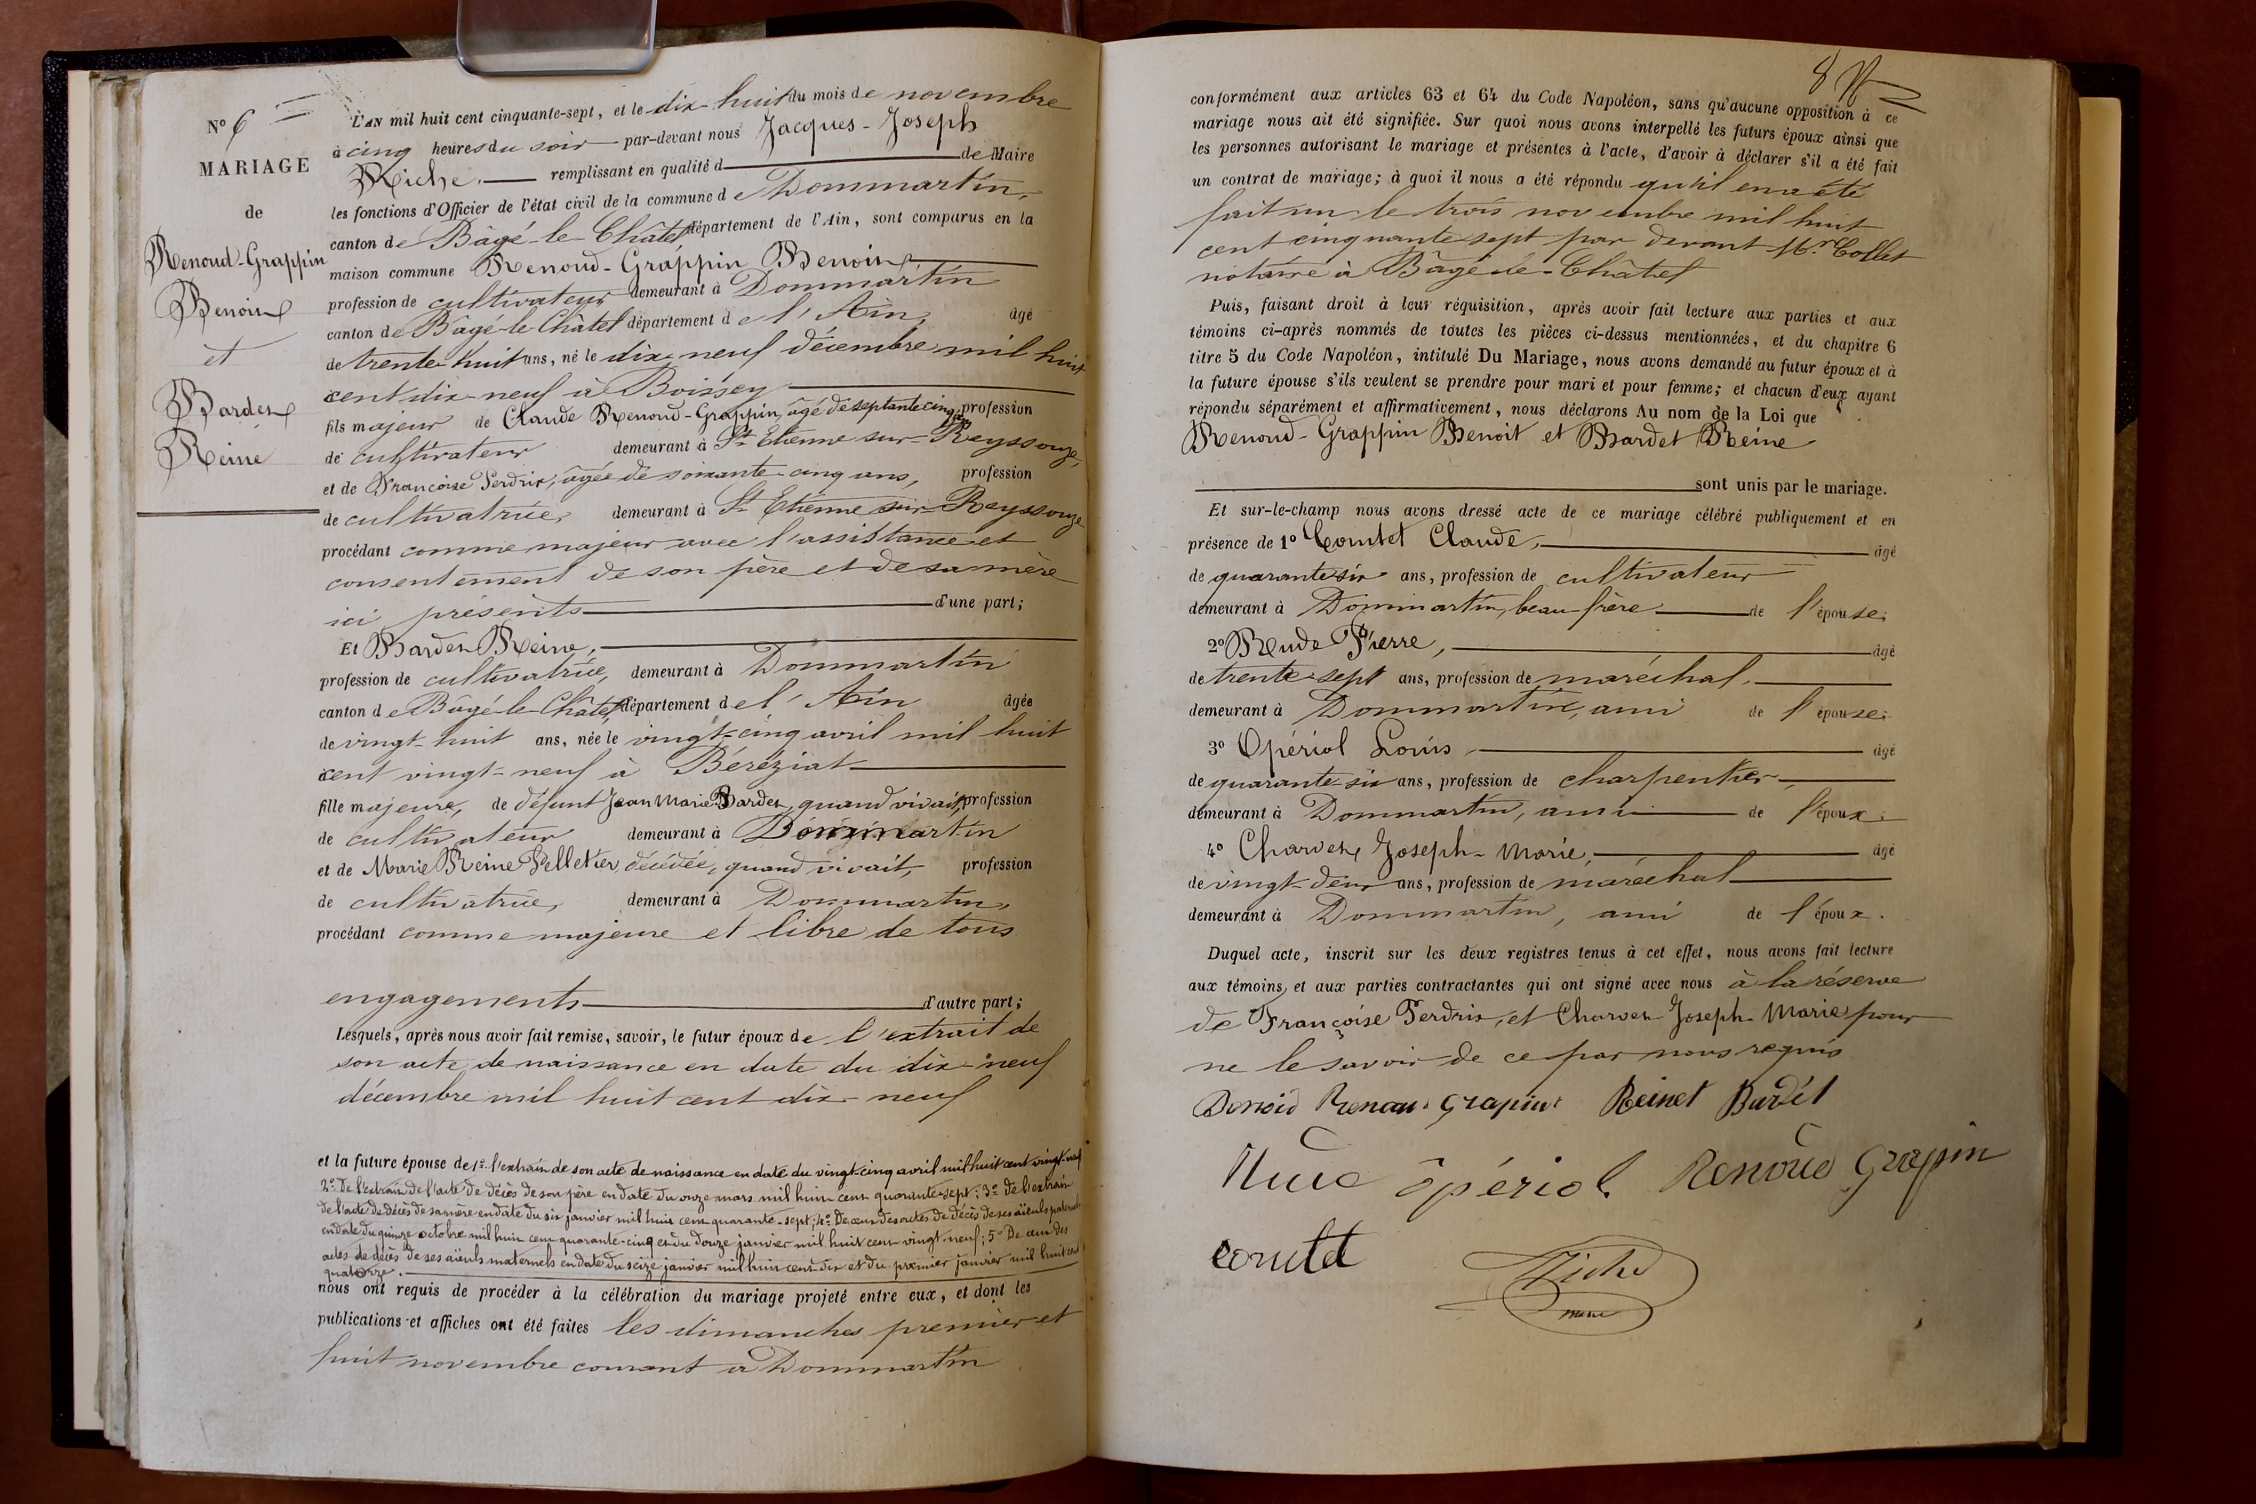 N° 6
MARIAGE
de
Renoud-Grappin
Benoit
et
Bardet
Reine
L'AN mil huit cent cinquante-sept, et le dix-huit du mois de novembre
à cinq heures du soir par-devant nous Jacques-Joseph
Riche. remplissant en qualité d de Maire
les fonctions d'Officier de l'état civil de la commune de Dommartin,
canton de Bâgé-le-Châtel département de l'Ain, sont comparus en la
maison commune Renoud-Grappin Benoit
profession de cultivateur demeurant à Dommartin
canton de Bâgé-le-Châtel département de l'Ain, âgé
de trente-huit ans, né le dix-neuf décembre mil huit
cent dix-neuf à Boissey
fils majeur de Claude Renoud-Grappin, âgé de septante cinq ans profession
de cultivateur demeurant à St Etienne sur-Reyssouze,
et de Françoise Perdrix, âgée de soixante-cinq ans, profession
de cultivatrice, demeurant à St Etienne sur-Reyssouze
procédant comme majeur avec l'assistance et
consentement de son père et de sa mère
ici présents d'une part;
Et Bardet Reine,
profession de cultivatrice, demeurant à Dommartin
canton de Bâgé-le-Châtel, département de l'Ain âgée
de vingt-huit ans, née le vingt-cinq avril mil huit
cent vingt-neuf à Béréziat
fille majeure, de défunt Jean Marie Bardet, quand vivait, profession
de cultivateur demeurant à Dommartin
et de Marie Reine Pelletier, décédée, quand vivait, profession
de cultivatrice, demeurant à Dommartin,
procédant comme majeure et libre de tous
engagements d'autre part;
Lesquels, après nous avoir fait remise, savoir, le futur époux de l'extrait de
son acte de naissance en date du dix-neuf
décembre mil huit cent dix-neuf
et la future épouse de 1° l'extrait de son acte de naissance en date du vingt-cinq avril mil huit cent vingt-neuf
2° De l'extrait de l'acte de décès de son père en date du onze mars mil huit cent quarante-sept; 3° de l'extrait
de l'acte de décès de sa mère en date du six janvier mil huit cent quarante-sept; 4° De ceux des actes de décès de ses aïeuls paternels
en date du quinze octobre mil huit cent quarante-cinq et du douze janvier mil huit cent vingt neuf; 5° De ceux des
actes de décès de ses aïeuls maternels en date du seize janvier mil huit cent dix et du premier janvier mil huit cent
quatorze.
nous ont requis de procéder à la célébration du mariage projeté entre eux, et dont les
publications et affiches ont été faites les dimanches premier et
huit novembre courant à Dommartin
8
conformément aux articles 63 et 64 du Code Napoléon, sans qu'aucune opposition à ce
mariage nous ait été signifiée. Sur quoi nous avons interpellé les futurs époux ainsi que
les personnes autorisant le mariage et présentes à l'acte, d'avoir à déclarer s'il a été fait
un contrat de mariage; à quoi il nous a été répondu qu'il en a été
fait un le trois novembre mil huit
cent cinquante-sept par devant Mr. Collet
notaire à Bâgé-le-Châtel
Puis, faisant droit à leur réquisition, après avoir fait lecture aux parties et aux
témoins ci-après nommés de toutes les pièces ci-dessus mentionnées, et du chapitre 6
titre 5 du Code Napoléon, intitulé Du Mariage, nous avons demandé au futur époux et à
la future épouse s'ils veulent se prendre pour mari et pour femme; et chacun d'eux ayant
répondu séparément et affirmativement, nous déclarons Au nom de la Loi que
Renoud-Grappin Benoit et Bardet Reine
sont unis par le mariage.
Et sur-le-champ nous avons dressé acte de ce mariage célébré publiquement et en
présence de 1° Comtet Claude, âgé
de quarante six ans, profession de cultivateur
demeurant à Dommartin, beau-frère de l'épouse;
2° Rude Pierre, âgé
de trente-sept ans, profession de maréchal,
demeurant à Dommartin, ami de l'épouse;
3° Opériol Louis âgé
de quarante-six ans, profession de charpentier,
demeurant à Dommartin, ami de l'époux;
4° Charvet Joseph-Marie, âgé
de vingt-deux ans, profession de maréchal
demeurant à Dommartin, ami de l'époux.
Duquel acte, inscrit sur les deux registres tenus à cet effet, nous avons fait lecture
aux témoins et aux parties contractantes qui ont signé avec nous à la réserve
de Françoise Perdrix, et Charvet Joseph-Marie pour
ne le savoir de ce par nous requis
Benoid Renau Grapint Reinet Bardét
Rude opériol Renoud Grapin
comtet
Riche
maire